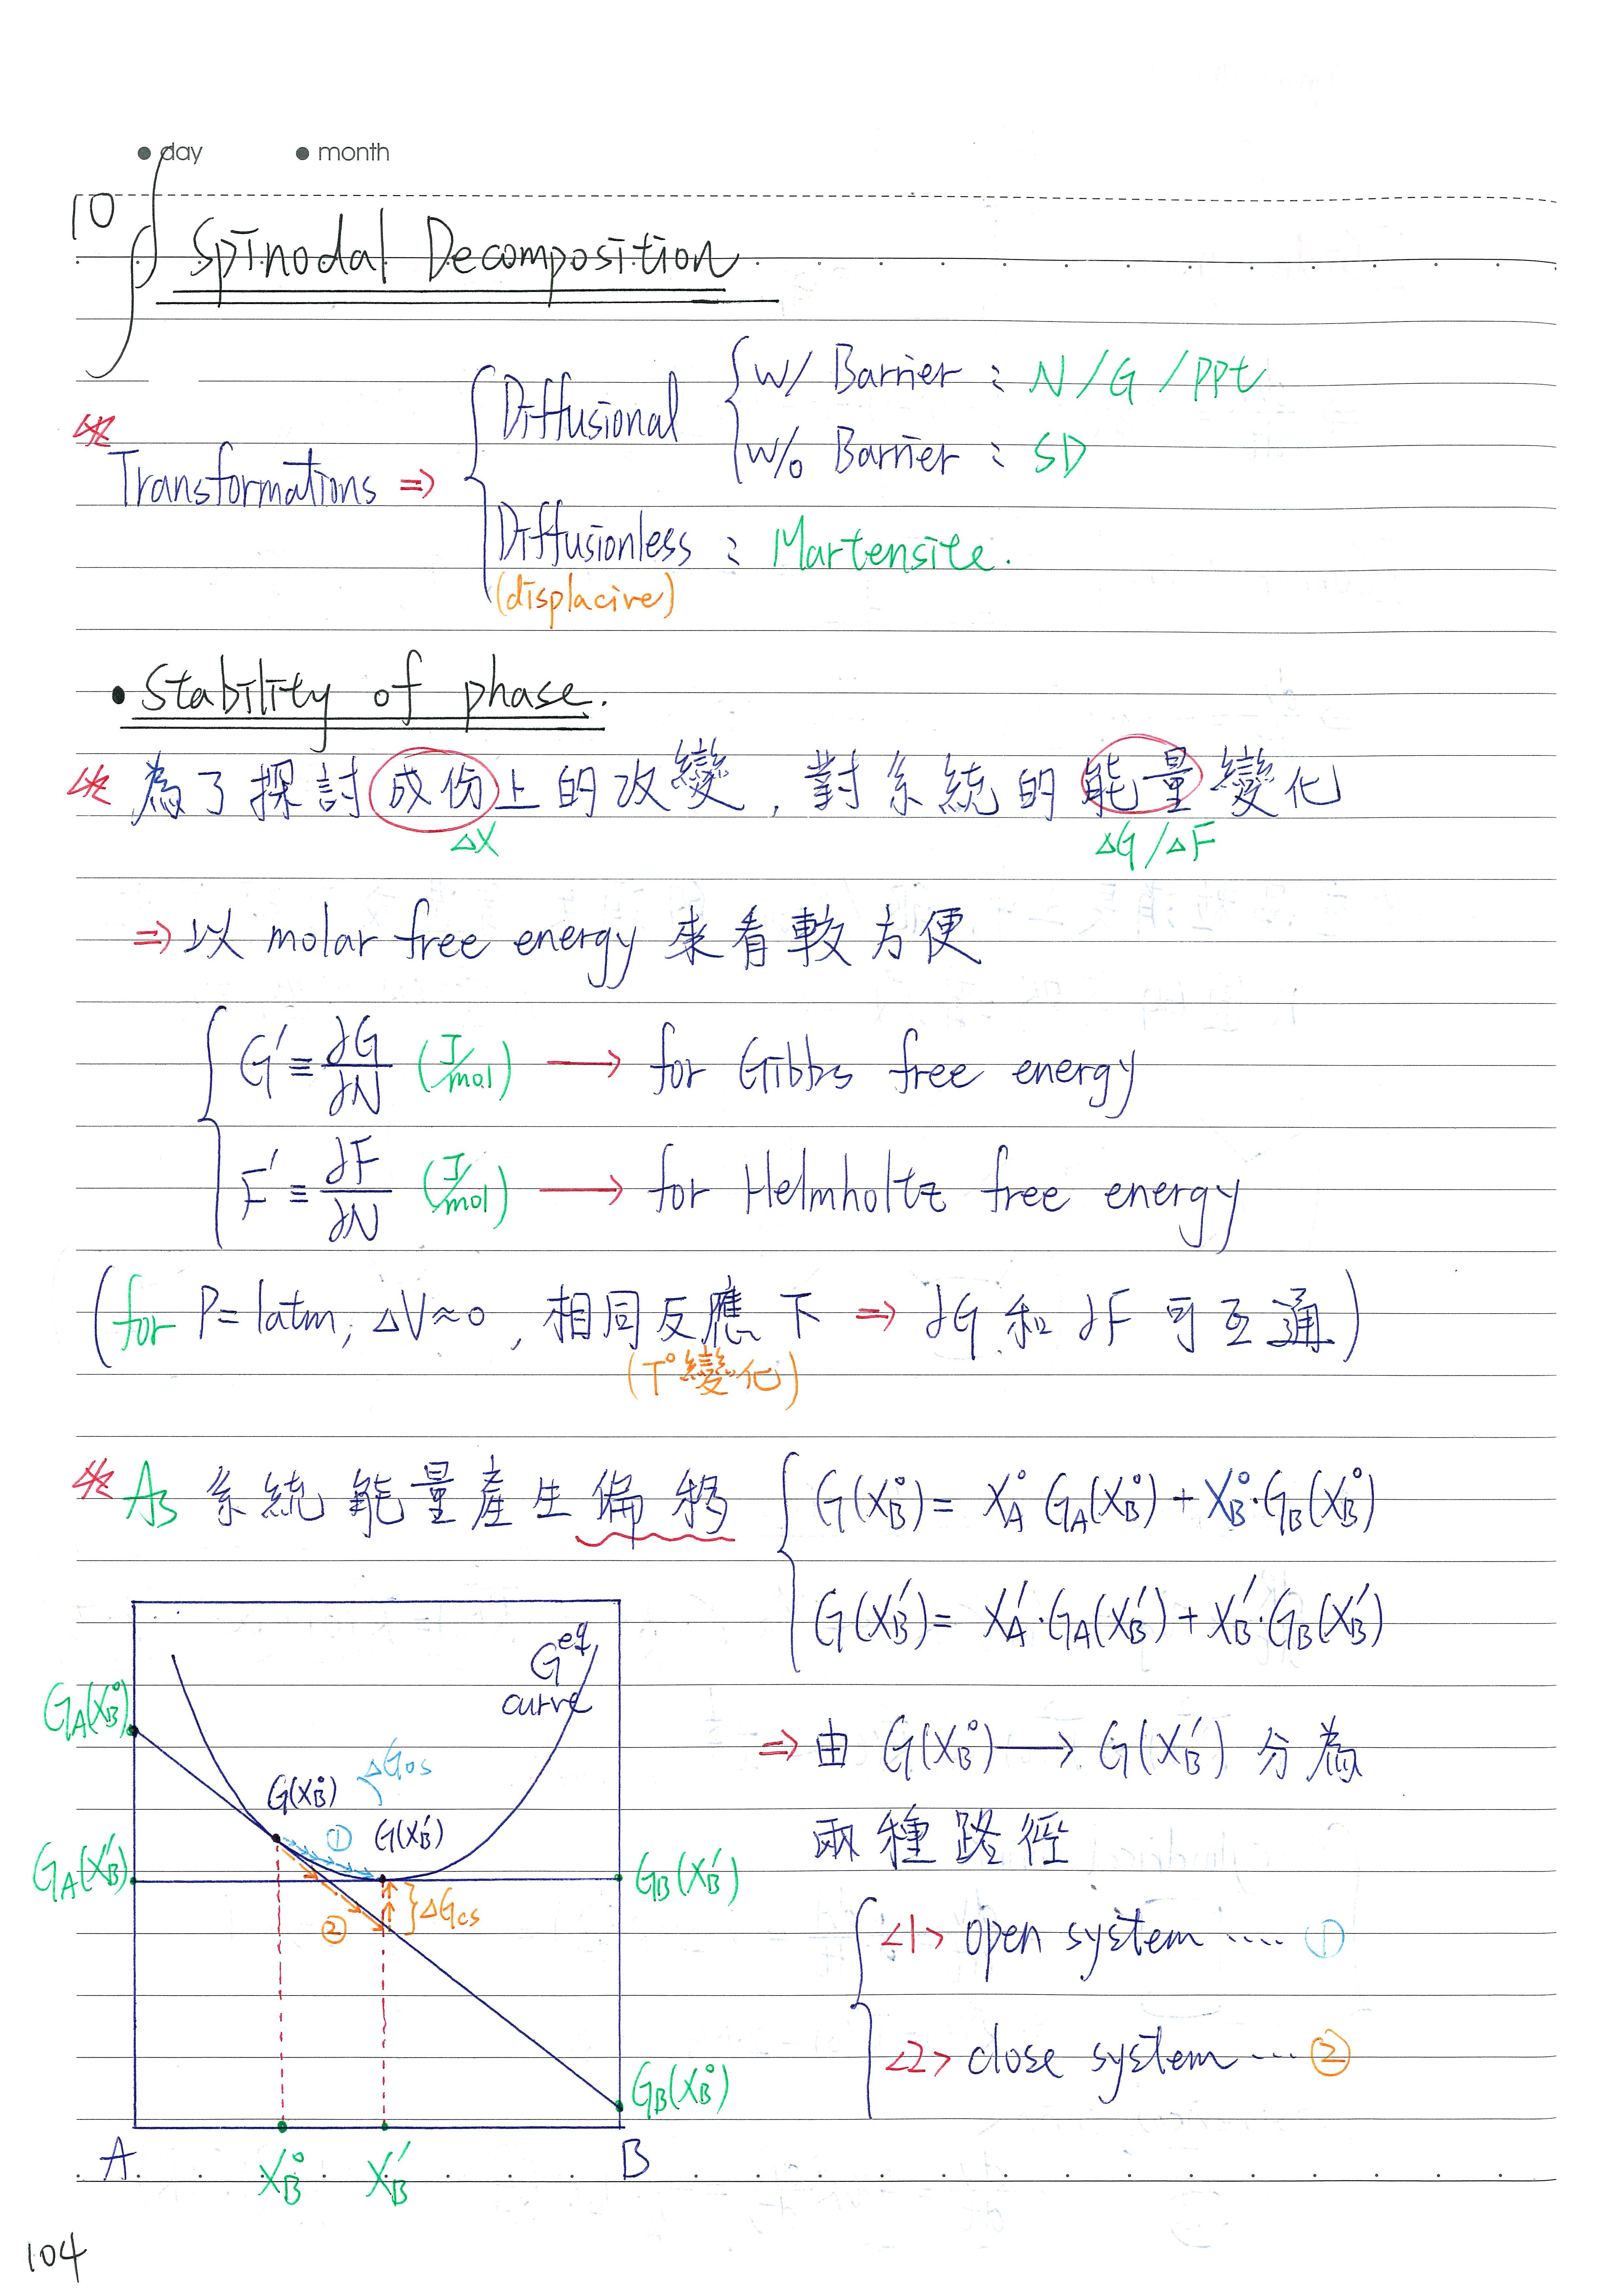 day month
10 § Spinodal Decomposition
Transformations ⇒ { Diffusional { w/ Barrier : N/G/ppt
w/o Barrier : SD
Diffusionless : Martensite.
(displacive)
• Stability of phase.
※ 為了探討成份上的改變, 對系統的能量變化
ΔX ΔG/ΔF
⇒ 以 molar free energy 來看較方便
G' ≡ ∂G/∂N (J/mol) ⟶ for Gibbs free energy
F' ≡ ∂F/∂N (J/mol) ⟶ for Helmholtz free energy
(for P=1atm, ΔV≈0, 相同反應下 ⇒ ∂G 和 ∂F 可互通)
(T°變化)
※ As 系統能量產生偏移 { G(X_B°) = X_A° G_A(X_B°) + X_B°·G_B(X_B°)
G(X_B') = X_A'·G_A(X_B') + X_B'·G_B(X_B')
G^eq curve
G_A(X_B°)
ΔG_os
G(X_B°)
① G(X_B')
G_A(X_B') G_B(X_B')
② ΔG_cs
G_B(X_B°)
A B
X_B° X_B'
⇒ 由 G(X_B°) ⟶ G(X_B') 分為
兩種路徑
<1> open system ···· ①
<2> close system ··· ②
104